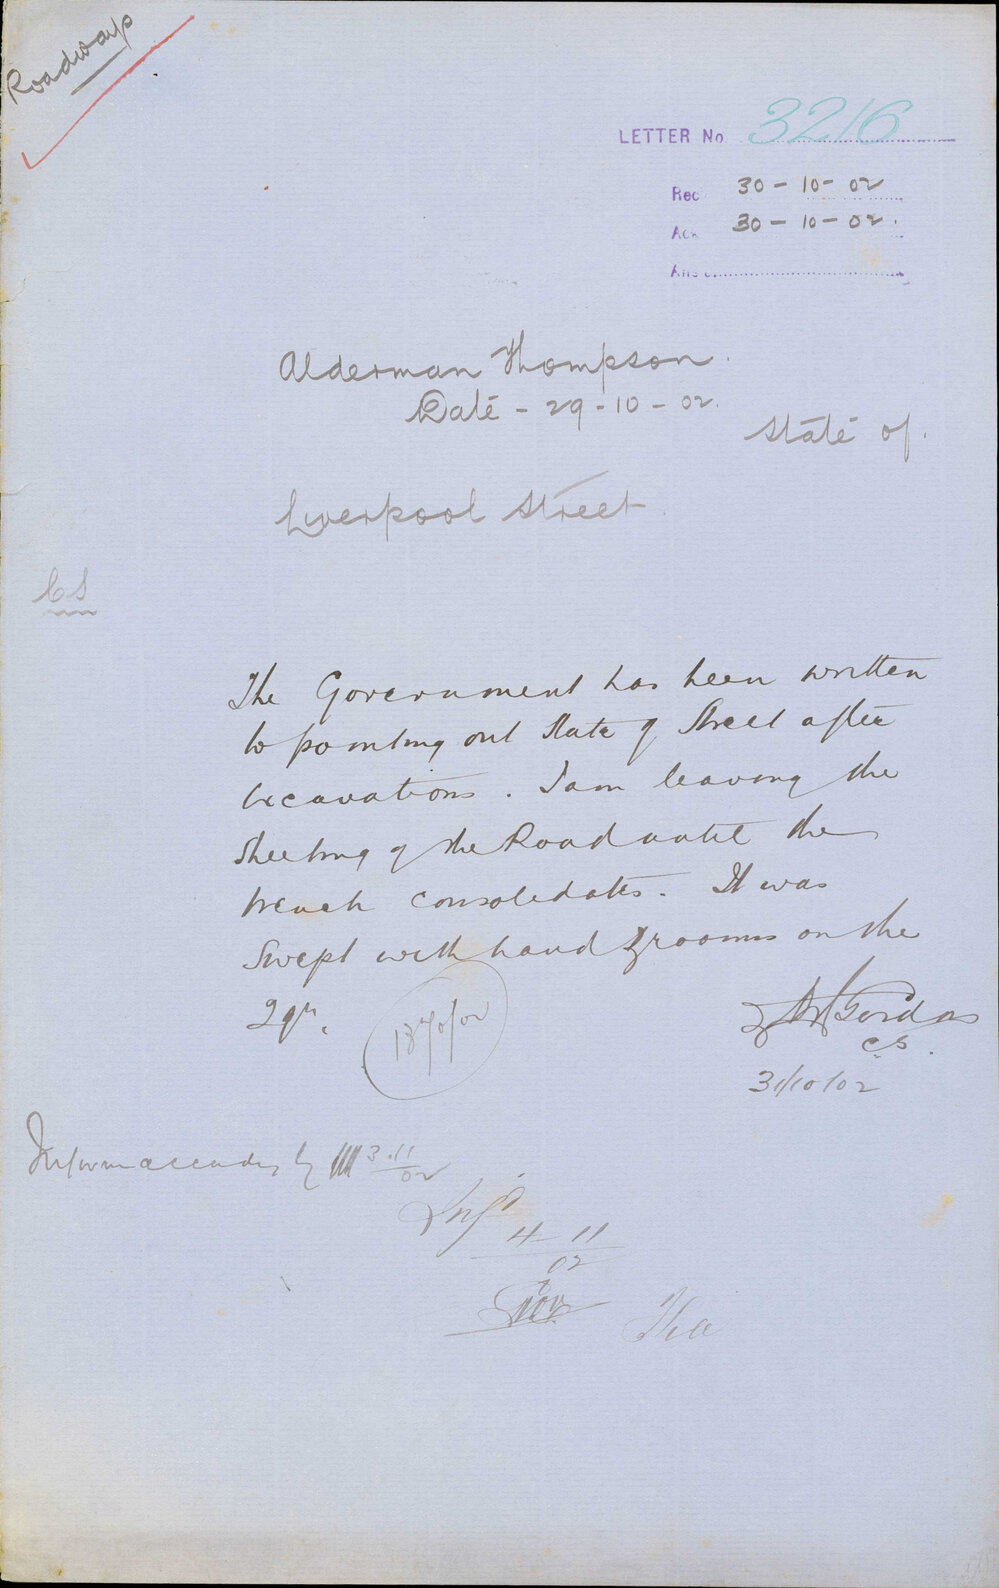 Roadways
LETTER No 3216
Rec 30 - 10 - 02
Ack 30 - 10 - 02.
Ans d
Alderman Thompson.
Date - 29 - 10 - 02.
State of.
Liverpool Street
CS
The Government has been written
to pointing out State of Street after
excavations. I am leaving the
sheeting of the Road until the
trench consolidates. It was
Swept with hand brooms on the
29th.
Gordon
CS.
31/10/02
Inform accordingly 3.11
02
4 11
02